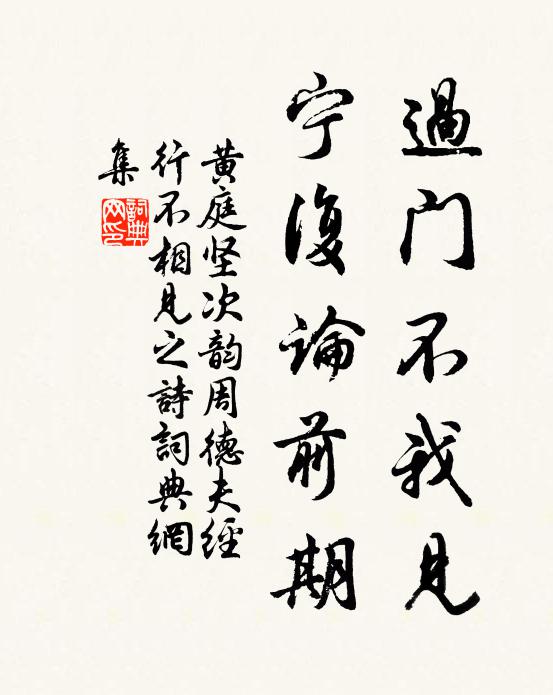 過门不我見
宁復論前期
黄庭坚次韵周德夫經
行不相見之詩詞典網
集
詞典
网印